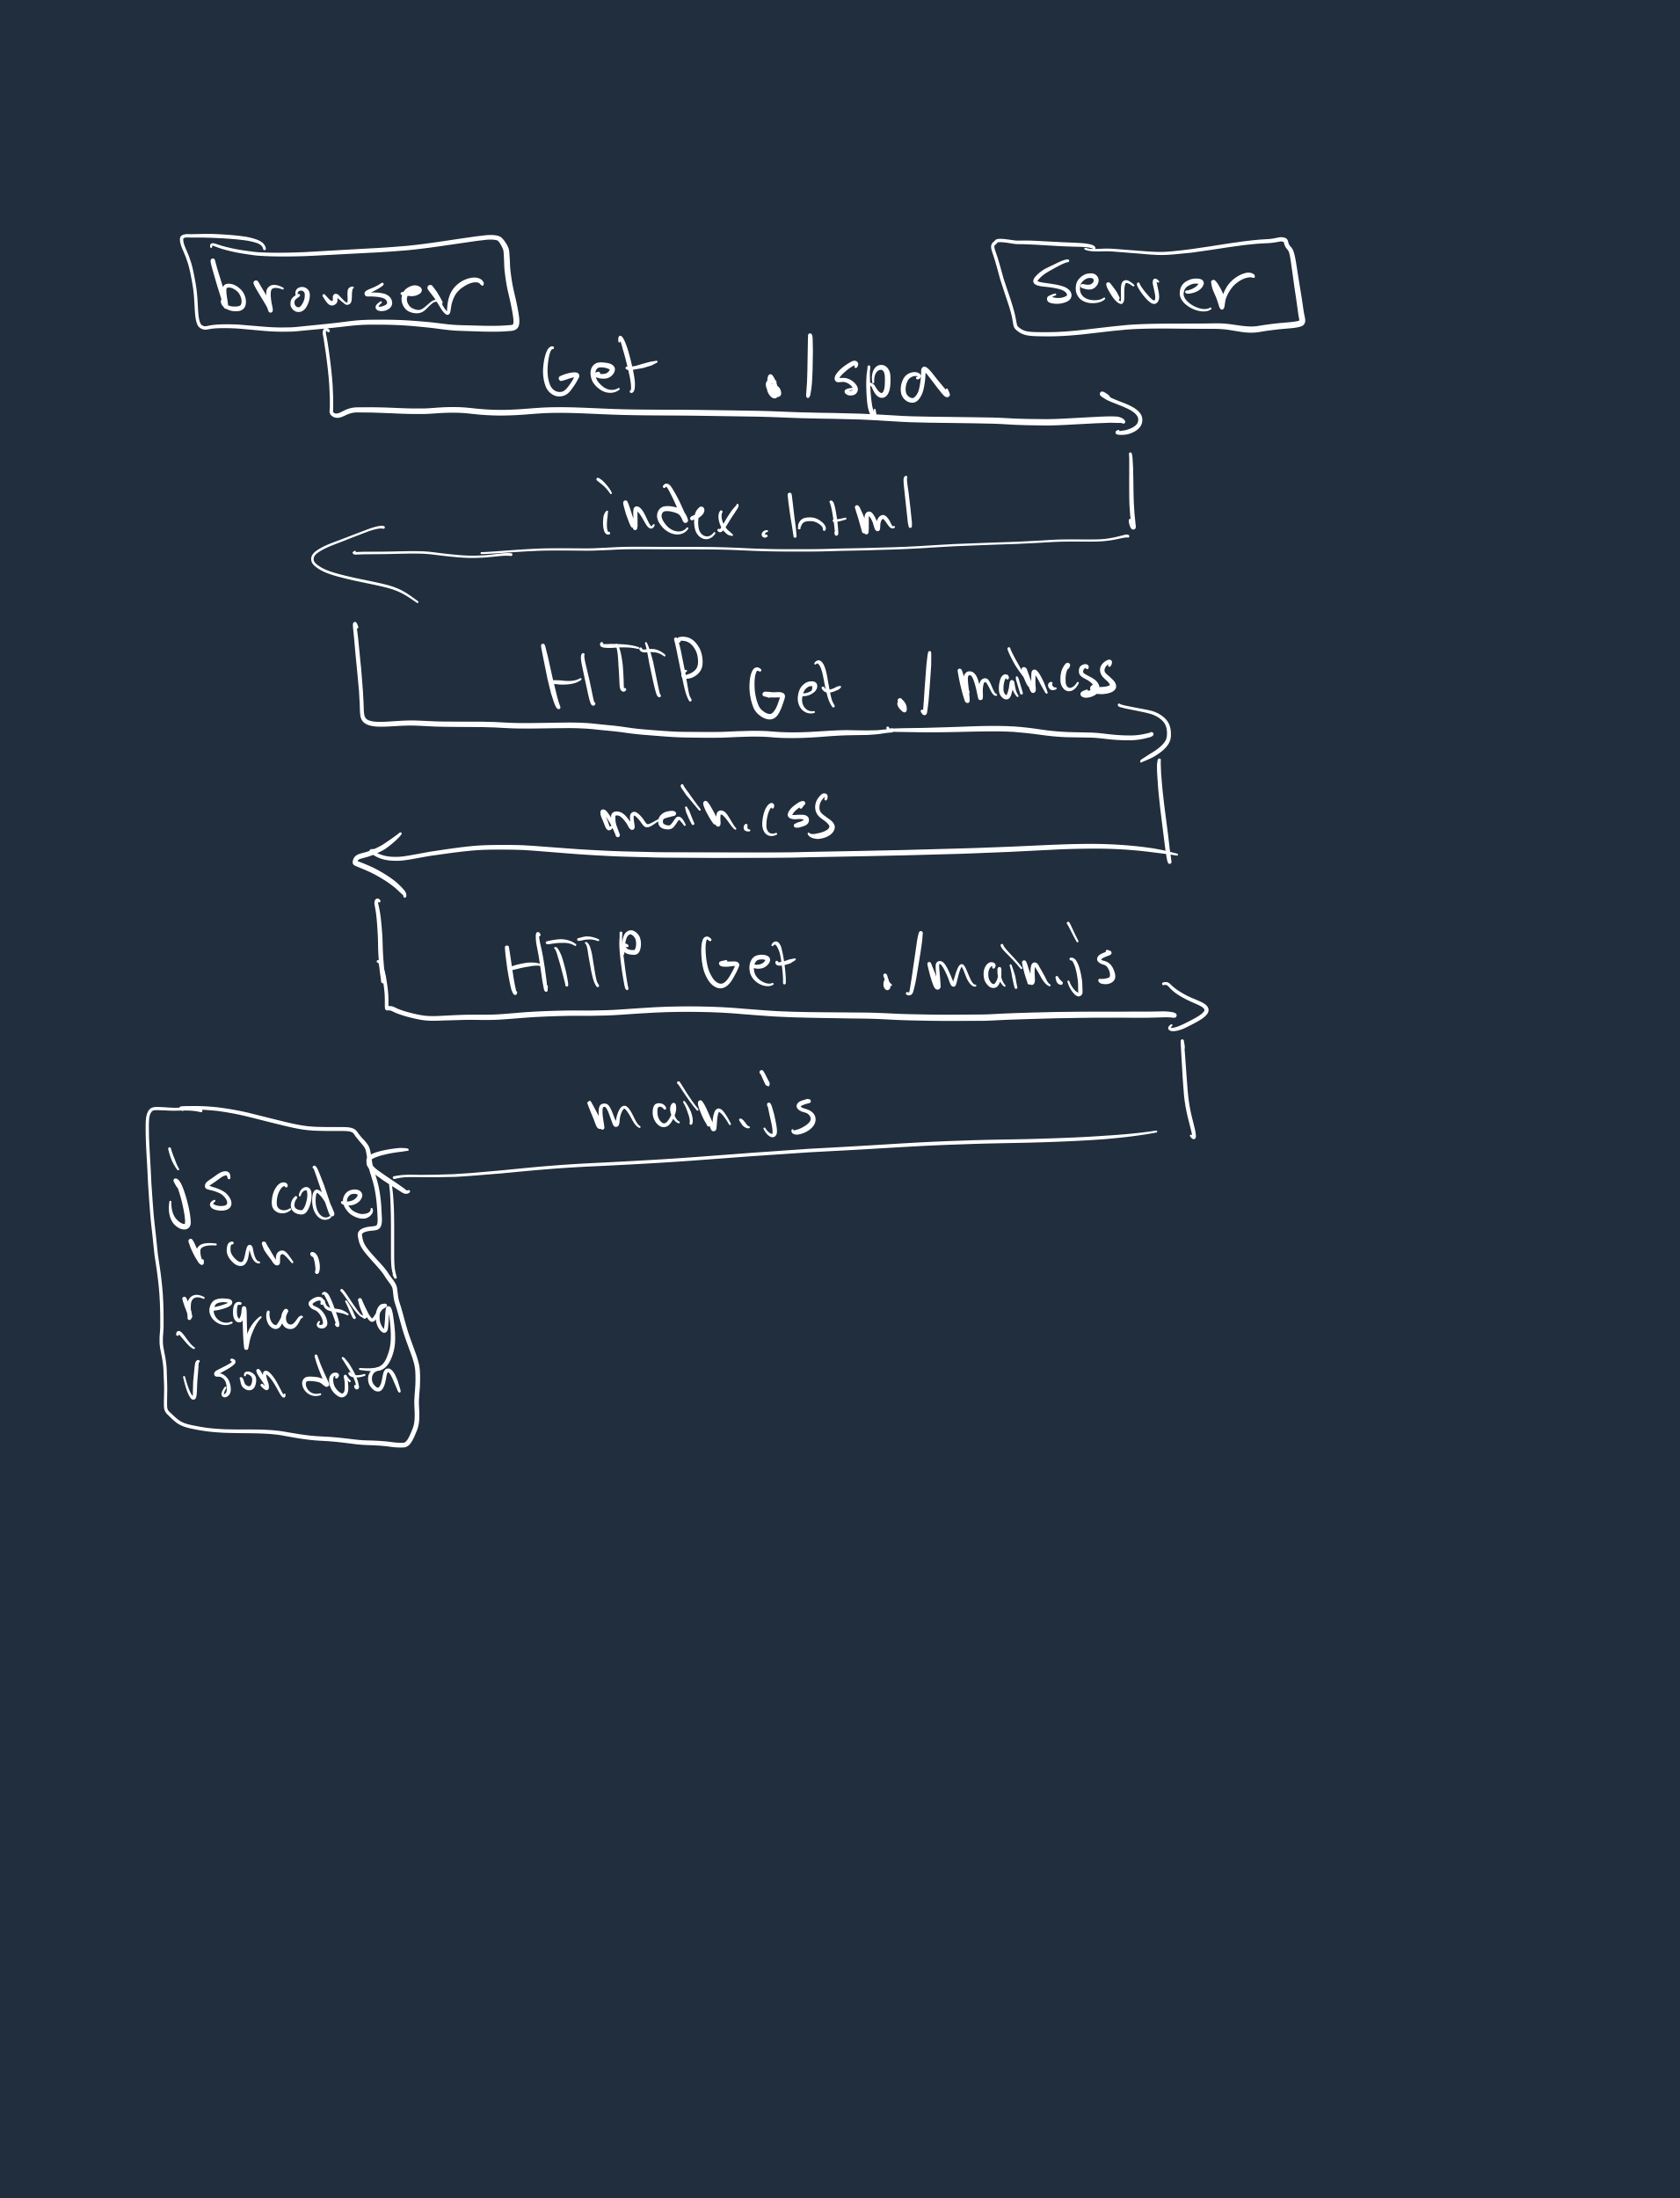 browser
Server
Get ./spa
index.html
HTTP Get ./main.css
main.css
HTTP Get ./main.js
main.js
js code
run,
requesting
json data